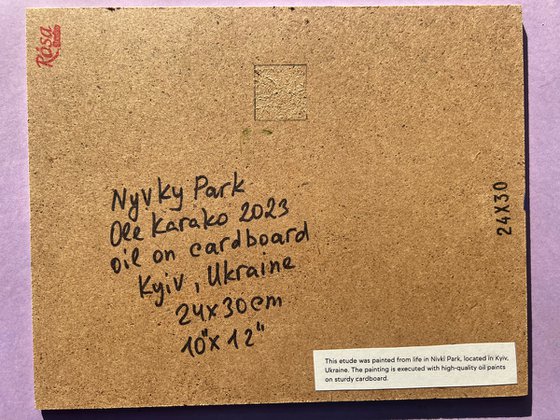 Rosa
Studio
Nyvky Park
Ole Karako 2023
oil on cardboard
Kyiv, Ukraine
24x30cm
10"x12"
24X30
This etude was painted from life in Nivki Park, located in Kyiv,
Ukraine. The painting is executed with high-quality oil paints
on sturdy cardboard.